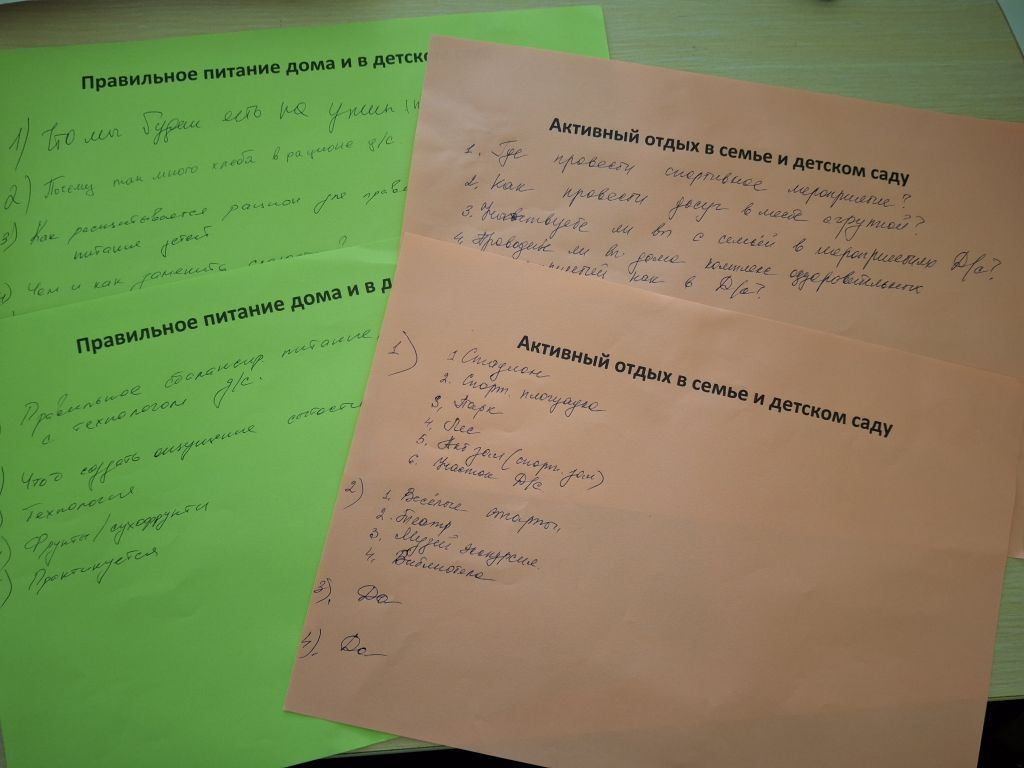 Правильное питание дома и в детско
1) Что мы будем есть на ужин
2) Почему так много хлеба в рационе д/с.
3) Как расчитывается рацион для прав
питание детей
4) Чем и как заменить ?
Правильное питание дома и в д
Правильное балансир. питание
с технологом д/с.
Чтоб создать ощущение сытости
Технология
Фрукты/сухофрукты
Практикуется
Активный отдых в семье и детском саду
1. Где провести спортивное мероприятие?
2. Как провести досуг вместе с группой?
3. Участвуете ли вы с семьёй в мероприятиях Д/с?
4. Проводите ли вы дома комплекс оздоровительных
как в Д/с?
Активный отдых в семье и детском саду
1) 1 Стадион
2. Спорт. площадка
3. Парк
4. Лес
5. Акт зал (спорт. зал)
6. Участок Д/с
2) 1. Весёлые старты.
2. Театр
3. Музей экскурсия.
4. Библиотека
3). Да
4). Да